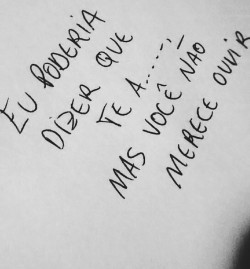 EU PODERIA
DIZER QUE
TE A.....,
MAS VOCÊ NÃO
MERECE OUVIR